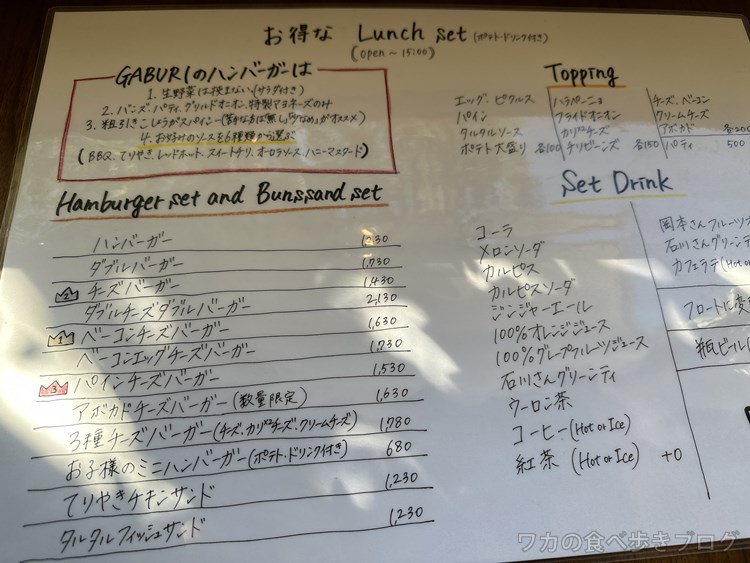 お得な Lunch set (ポテト・ドリンク付き)
(open ~ 15:00)
GABURIのハンバーガーは
1. 生野菜は挟まない(サラダ付き)
2. バンズ・パティ・グリルドオニオン、特製マヨネーズのみ
3. 粗引きこしょうがスパイシー(苦手な方は無し、「少なめ」がオススメ)
4. お好みのソースを6種類から選ぶ
(BBQ、てりやき、レッドホット、スイートチリ、オーロラソース、ハニーマスタード)
Hamburger set and Bunssand set
ハンバーガー 1,230
ダブルバーガー 1,730
2 チーズバーガー 1,430
ダブルチーズダブルバーガー 2,130
1 ベーコンチーズバーガー 1,630
ベーコンエッグチーズバーガー 1,730
3 パインチーズバーガー 1,530
アボカドチーズバーガー(数量限定) 1,630
3種チーズバーガー(チーズ、カリカリチーズ、クリームチーズ) 1,780
お子様のミニハンバーガー(ポテト・ドリンク付き) 680
てりやきチキンサンド 1,230
タルタルフィッシュサンド 1,230
Topping
エッグ、ピクルス
パイン
タルタルソース
ポテト大盛り 各100
ハラペーニョ
フライドオニオン
カリカリチーズ
チリビーンズ 各150
チーズ、ベーコン
クリームチーズ
アボカド 各200
パティ 500
Set Drink
コーラ
メロンソーダ
カルピス
カルピスソーダ
ジンジャーエール
100%オレンジジュース
100%グレープフルーツジュース
石川さんグリーンティ
ウーロン茶
コーヒー(Hot or Ice)
紅茶 (Hot or Ice) +0
岡本さんフルーツ
石川さんグリーンティ
カフェラテ(Hot or
フロートに変
瓶ビール(
ワカの食べ歩きブログ